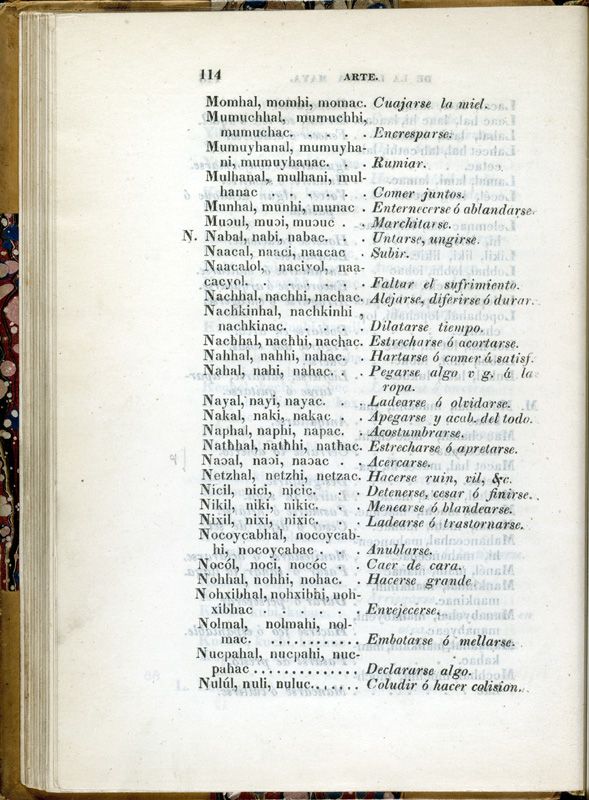 114 ARTE.
Momhal, momhi, momac. Cuajarse la miel.
Mumuchhal, mumuchhi,
mumuchac. . . . . Encresparse.
Mumuyhanal, mumuyha-
ni, mumuyhanac. . . Rumiar.
Mulhanal, mulhani, mul-
hanac . . . . . Comer juntos.
Munhal, munhi, munac . Enternecerse ó ablandarse.
Muɔul, muɔi, muɔuc . . Marchitarse.
N. Nabal, nabi, nabac. . . Untarse, ungirse.
Naacal, naaci, naacac . Subir.
Naacalol, naciyol, naa-
cacyol. . . . . . . Faltar el sufrimiento.
Nachhal, nachhi, nachac. Alejarse, diferirse ó durar.
Nachkinhal, nachkinhi ,
nachkinac. . . . . Dilatarse tiempo.
Nacħhal, nacħhi, nacħac. Estrecharse ó acortarse.
Nahhal, nahhi, nahac. . Hartarse ó comer á satisf.
Nahal, nahi, nahac. . . Pegarse algo v g. á la
ropa.
Nayal, nayi, nayac. . . Ladearse ó olvidarse.
Nakal, naki, nakac . . Apegarse y acab. del todo.
Naphal, naphi, napac. . Acostumbrarse.
Natħhal, natħhi, natħac. Estrecharse ó apretarse.
Naɔal, naɔi, naɔac . . Acercarse.
Netzhal, netzhi, netzac. Hacerse ruin, vil, &c.
Nicil, nici, nicic. . . Detenerse, cesar ó finirse.
Nikil, niki, nikic. . . Menearse ó blandearse.
Nixil, nixi, nixic. . . Ladearse ó trastornarse.
Nocoycabhal, nocoycab-
hi, nocoycabac . . . Anublarse.
Nocól, noci, nocóc . . Caer de cara.
Nohhal, nohhi, nohac. . Hacerse grande
Nohxibhal, nohxibhi, noh-
xibhac . . . . . Envejecerse.
Nolmal, nolmahi, nol-
mac. . . . . . . . . . . . . . Embotarse ó mellarse.
Nucpahal, nucpahi, nuc-
pahac . . . . . . . . . . . . . . Declararse algo.
Nulúl, nuli, nuluc. . . . . . . Coludir ó hacer colision.